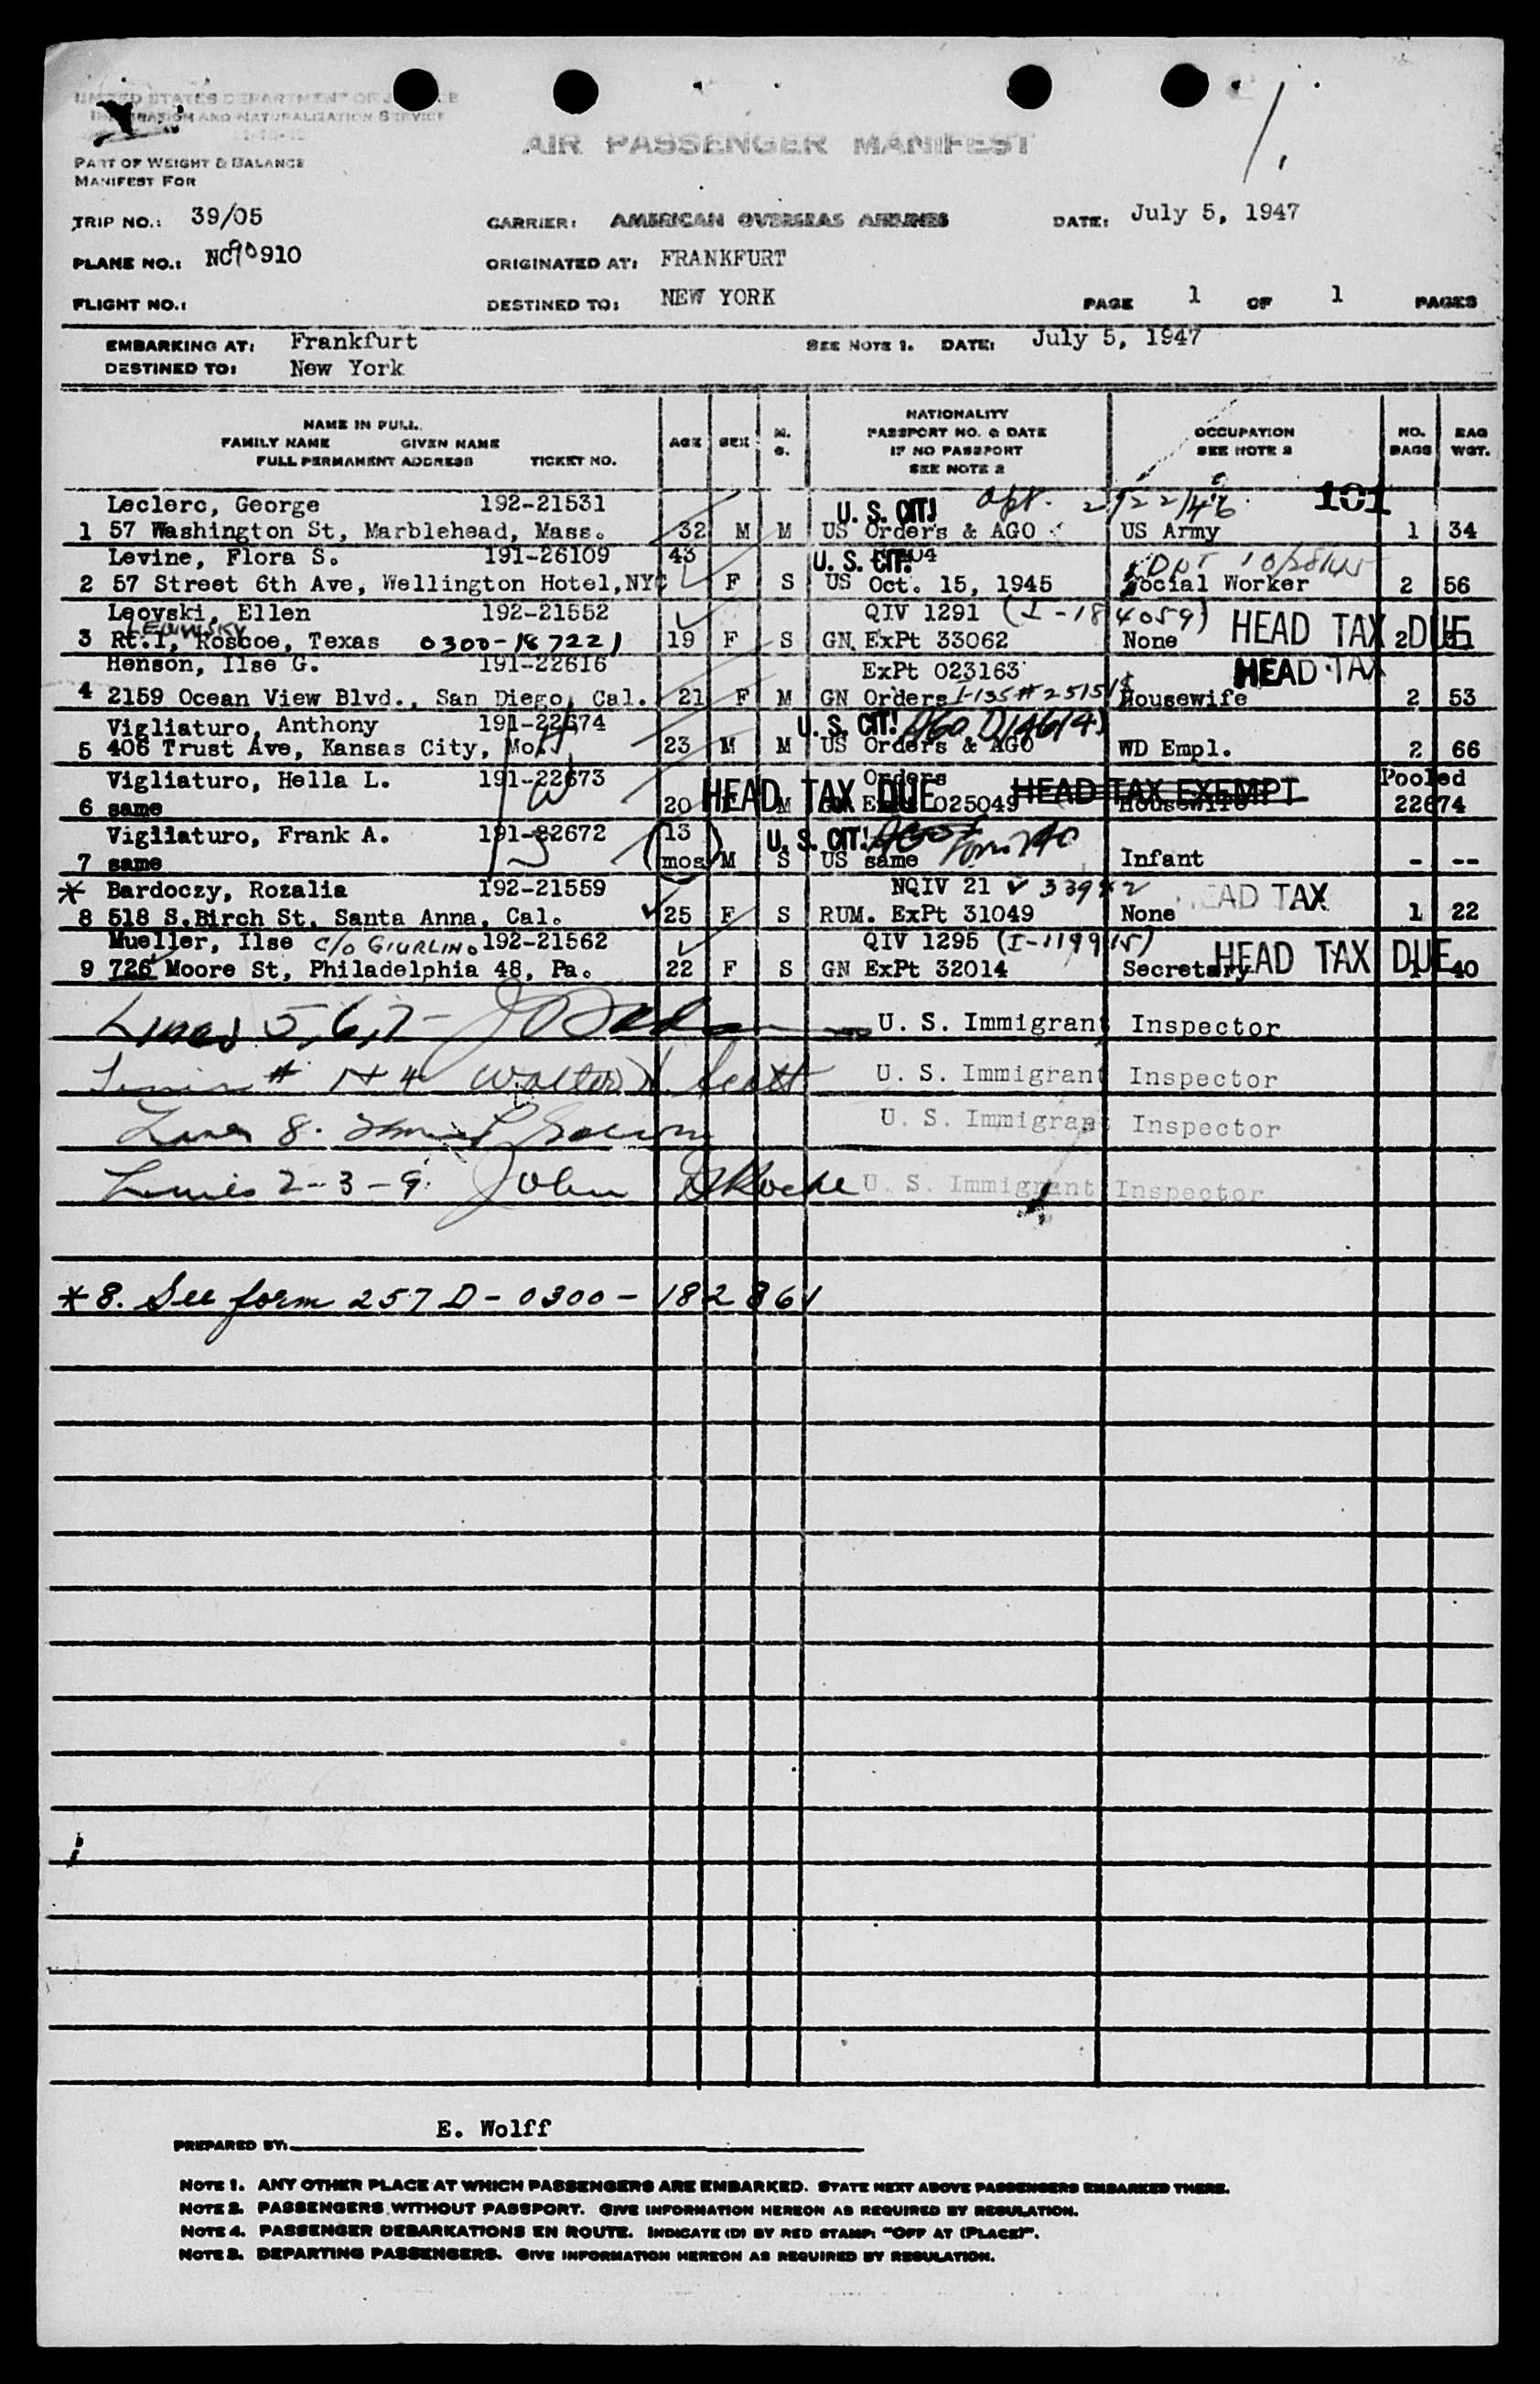 UNITED STATES DEPARTMENT OF JUSTICE
IMMIGRATION AND NATURALIZATION SERVICE
AIR PASSENGER MANIFEST
1.
PART OF WEIGHT & BALANCE
MANIFEST FOR
TRIP NO.: 39/05 CARRIER: AMERICAN OVERSEAS AIRLINES DATE: July 5, 1947
PLANE NO.: NC90910 ORIGINATED AT: FRANKFURT
FLIGHT NO.: DESTINED TO: NEW YORK PAGE 1 OF 1 PAGES
EMBARKING AT: Frankfurt SEE NOTE 1. DATE: July 5, 1947
DESTINED TO: New York
NAME IN FULL. FAMILY NAME GIVEN NAME FULL PERMANENT ADDRESS TICKET NO. AGE SEX M. S. NATIONALITY PASSPORT NO. & DATE IF NO PASSPORT SEE NOTE 2 OCCUPATION SEE NOTE 2 NO. BAGS BAG WGT.
Leclerc, George 192-21531 U. S. CIT! 2/22/46 101
1 57 Washington St, Marblehead, Mass. 32 M M US Orders & AGO US Army 1 34
Levine, Flora S. 191-26109 43 U. S. CIT! 10/28/45
2 57 Street 6th Ave, Wellington Hotel, NYC F S US Oct. 15, 1945 Social Worker 2 56
Leovski, Ellen 192-21552 QIV 1291 (I-184059) HEAD TAX DUE
LEWINSKY
3 Rt.1, Roscoe, Texas 0300-187221 19 F S GN. ExPt 33062 None 2
Henson, Ilse G. 191-22616 ExPt 023163 HEAD TAX
4 2159 Ocean View Blvd., San Diego, Cal. 21 F M GN Orders Housewife 2 53
Vigliaturo, Anthony 191-22674 U. S. CIT! AGO
5 406 Trust Ave, Kansas City, Mo. 23 M M US Orders & AGO WD Empl. 2 66
Vigliaturo, Hella L. 191-22673 Orders HEAD TAX DUE HEAD TAX EXEMPT Pooled
6 same 20 M 025049 Housewife 22674
Vigliaturo, Frank A. 191-22672 (13 U. S. CIT!
7 same mos) M S US same Infant - --
* Bardoczy, Rozalia 192-21559 NQIV 21 HEAD TAX
8 518 S.Birch St, Santa Anna, Cal. 25 F S RUM. ExPt 31049 None 1 22
Mueller, Ilse c/o GIURLINO 192-21562 QIV 1295 (I-119915) HEAD TAX DUE
9 726 Moore St, Philadelphia 48, Pa. 22 F S GN ExPt 32014 Secretary 1 40
Lines 5,6,7- U. S. Immigrant Inspector
# 1+4 Walter Scott U. S. Immigrant Inspector
8. U. S. Immigrant Inspector
Lines 2-3-9. John Roche U. S. Immigrant Inspector
*8. See form 257 D-0300-182861
E. Wolff
PREPARED BY:
NOTE 1. ANY OTHER PLACE AT WHICH PASSENGERS ARE EMBARKED. STATE NEXT ABOVE PASSENGERS EMBARKED THERE.
NOTE 2. PASSENGERS WITHOUT PASSPORT. GIVE INFORMATION HEREON AS REQUIRED BY REGULATION.
NOTE 4. PASSENGER DEBARKATIONS EN ROUTE. INDICATE (D) BY RED STAMP: "OFF AT (PLACE)".
NOTE 3. DEPARTING PASSENGERS. GIVE INFORMATION HEREON AS REQUIRED BY REGULATION.